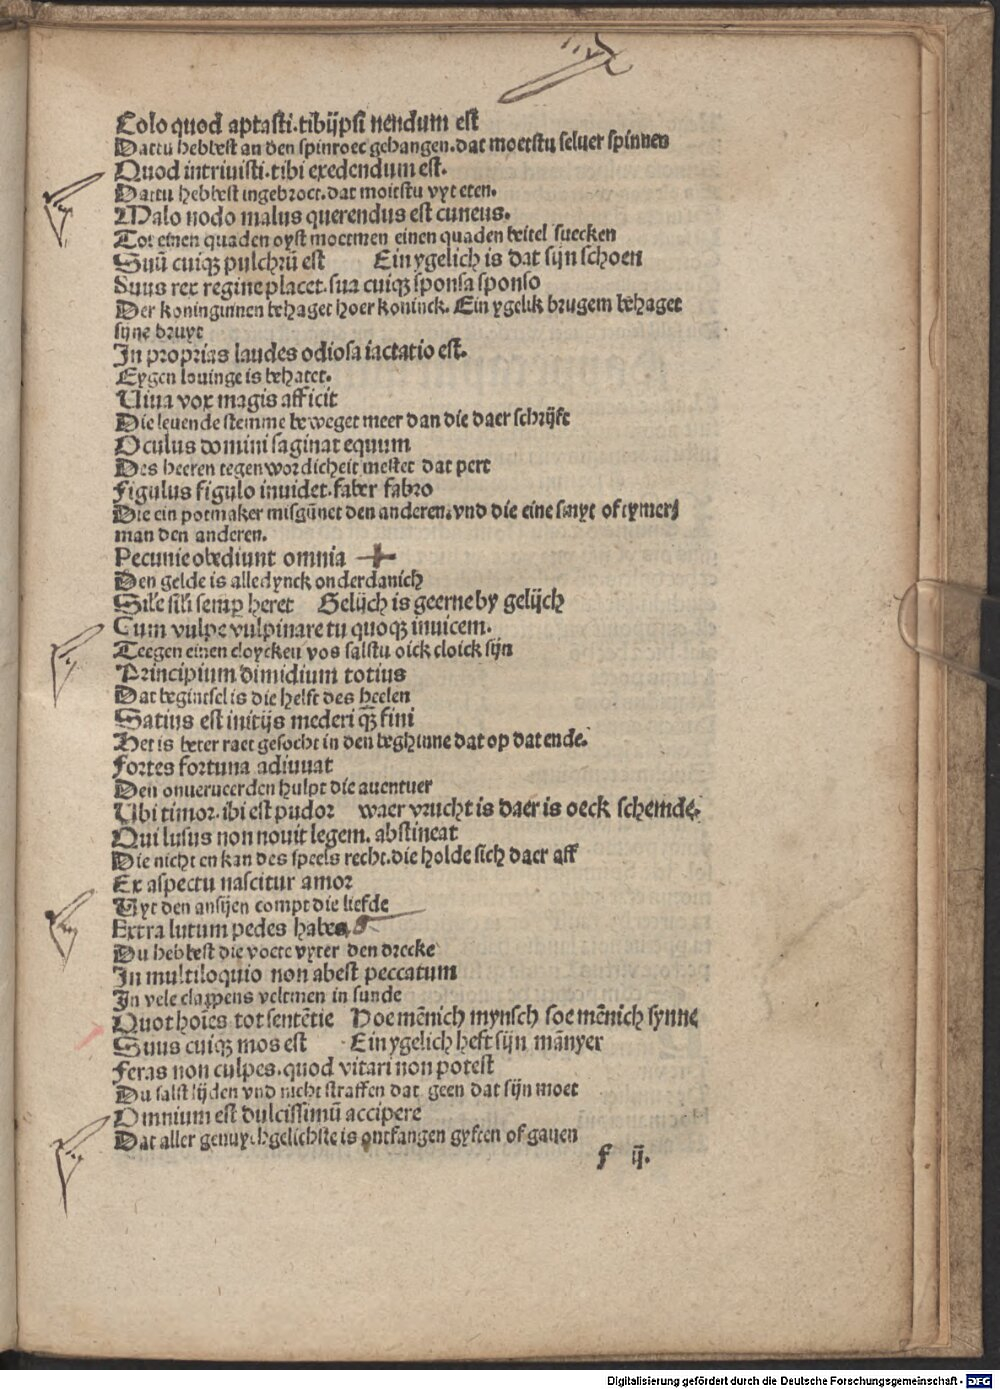 Colo quod aptasti.tibijpsi nendum est
Dattu hebbest an den spinroec gehangen.dat moetstu seluer spinnen
Quod intriuisti.tibi exedendum est.
Dattu hebbest ingebroct.dat moitstu vyt eten.
Malo nodo malus querendus est cuneus.
Tot einen quaden oyst moetmen einen quaden beitel suecken
Suū cuiqꝫ pulchrū est Ein ygelich is dat sijn schoen
Suus rex regine placet.sua cuiqꝫ sponsa sponso
Der koninginnen behaget hoer koninck. Ein ygelik brugem behaget
sijne bruyt
In proprias laudes odiosa iactatio est.
Eygen louinge is behatet.
Uiua vox magis afficit
Die leuende stemme beweget meer dan die daer schrijft
Oculus domini saginat equum
Des heeren tegenwordicheit mestet dat pert
Figulus figulo inuidet.faber fabro
Die ein potmaker misgūnet den anderen.vnd die eine smyt of tymer⸗
man den anderen.
Pecunie obediunt omnia
Den gelde is alledynck onderdanich
Sile sili semp heret Gelijch is geerne by gelijch
Cum vulpe vulpinare tu quoqꝫ inuicem.
Teegen einen cloycken vos salstu oick cloick sijn
Principium dimidium totius
Dat begintsel is die helft des heelen
Satius est initijs mederi qꝫ̄ fini
Het is beter raet gesocht in den beghinne dat op dat ende.
Fortes fortuna adiuuat
Den onueruerden hulpt die auentuer
Ubi timor.ibi est pudor waer vrucht is daer is oeck schemde.
Qui lusus non nouit legem. abstineat
Die nicht en kan des speels recht.die holde sich daer aff
Ex aspectu nascitur amor
Uyt den ansijen compt die liefde
Extra lutum pedes habes
Du hebbest die voete vyter den drecke
In multiloquio non abest peccatum
In vele clappens veltmen in sunde
Quot hoīes tot sentētie Hoe mēnich mynsch soe mēnich synne
Suus cuiqꝫ mos est Ein ygelich heft sijn mānyer
Feras non culpes.quod vitari non potest
Du salst lijden vnd nicht straffen dat geen dat sijn moet
Omnium est dulcissimū accipere
Dat aller genuychgelichste is ontfangen gyften of gauen
f ij.
Digitalisierung gefördert durch die Deutsche Forschungsgemeinschaft - DFG